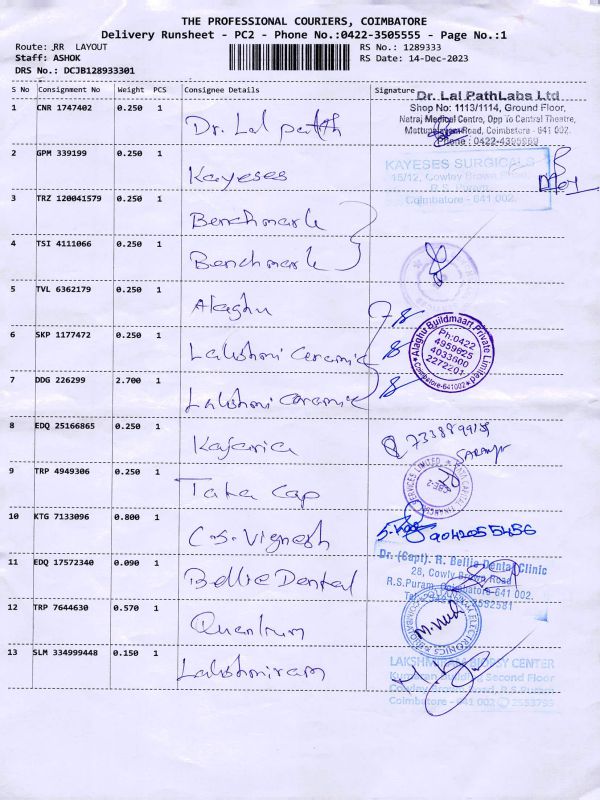 THE PROFESSIONAL COURIERS, COIMBATORE
Delivery Runsheet - PC2 - Phone No.:0422-3505555 - Page No.:1
Route: RR LAYOUT
RS No.: 1289333
Staff: ASHOK
RS Date: 14-Dec-2023
DRS No.: DCJB128933301
S No Consignment No Weight PCS Consignee Details Signature
1 CNR 1747402 0.250 1 Dr. Lal path
Dr. Lal PathLabs Ltd
Shop No: 1113/1114, Ground Floor,
Natraj Medical Centre, Opp To Central Theatre,
Mettupalayam Road, Coimbatore - 641 002.
Phone : 0422-4395960
2 GPM 339199 0.250 1 Kayeses
KAYESES SURGICALS
15/12, Cowley Brown Road,
R.S. Puram,
Coimbatore - 641 002.
3 TRZ 120041579 0.250 1 Benchmark
4 TSI 4111066 0.250 1 Benchmark
5 TVL 6362179 0.250 1 Alaghu
6 SKP 1177472 0.250 1 Lakshmi Ceramic
Alaghu Buildmaart Private Limited
Ph:0422
4959625
4033600
2272201
Coimbatore-641002
7 DDG 226299 2.700 1 Lakshmi Ceramic
8 EDQ 25166865 0.250 1 Kajaria
9 TRP 4949306 0.250 1 Tata Cap
CBE-2
10 KTG 7133096 0.800 1 C.S. Vignesh
9042055456
11 EDQ 17572340 0.090 1 Bellie Dental
Dr. (Capt). R. Bellie Dental Clinic
28, Cowly Brown Road
R.S.Puram, Coimbatore-641 002.
12 TRP 7644630 0.570 1 Quantum
13 SLM 334999448 0.150 1 Lakshmiram
CENTER
Second Floor
Coimbatore - 641 002 2553795